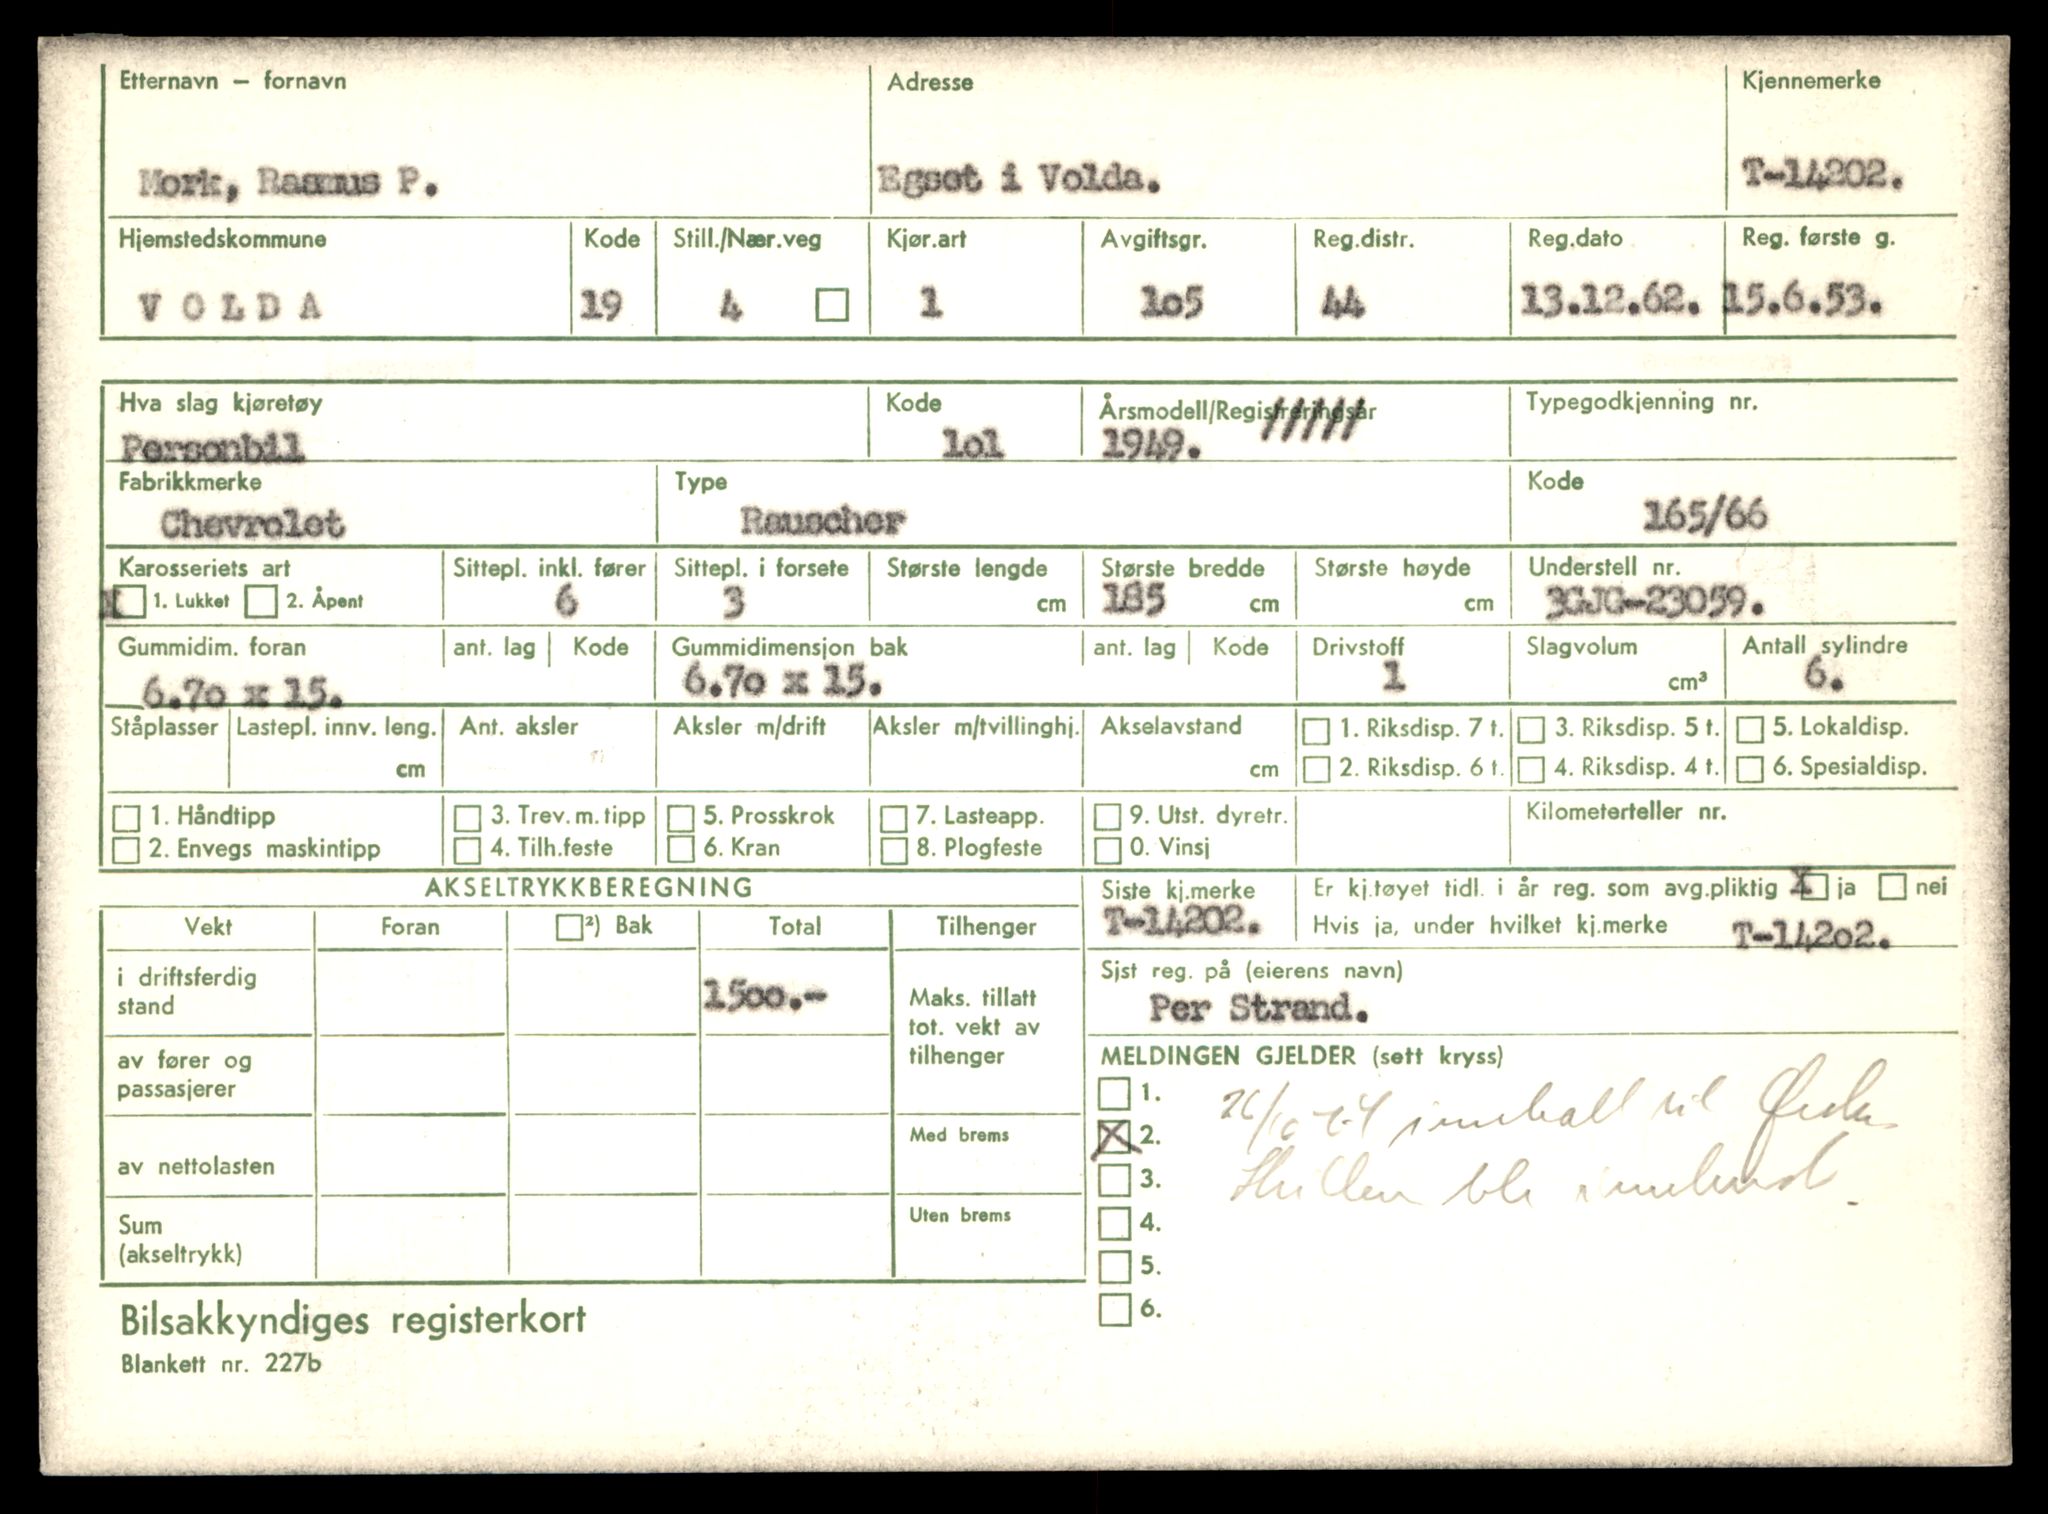 Etternavn – fornavn Adresse Kjennemerke
Mork, Rasmus P. Egset i Volda. T-14202.
Hjemstedskommune Kode Still./Nær.veg Kjør.art Avgiftsgr. Reg.distr. Reg.dato Reg. første g.
VOLDA 19 4 1 1o5 44 13.12.62. 15.6.53.
Hva slag kjøretøy Kode Årsmodell/Registreringsår Typegodkjenning nr.
Personbil 1o1 1949. /////
Fabrikkmerke Type Kode
Chevrolet Rauscher 165/66
Karosseriets art Sittepl. inkl. fører Sittepl. i forsete Største lengde Største bredde Største høyde Understell nr.
X 1. Lukket 2. Åpent 6 3 cm 185 cm cm 3GJG-23059.
Gummidim. foran ant. lag Kode Gummidimensjon bak ant. lag Kode Drivstoff Slagvolum Antall sylindre
6.7o x 15. 6.7o x 15. 1 cm³ 6.
Ståplasser Lastepl. innv. leng. Ant. aksler Aksler m/drift Aksler m/tvillinghj. Akselavstand 1. Riksdisp. 7 t. 3. Riksdisp. 5 t. 5. Lokaldisp.
cm cm 2. Riksdisp. 6 t. 4. Riksdisp. 4 t. 6. Spesialdisp.
1. Håndtipp 3. Trev. m. tipp 5. Prosskrok 7. Lasteapp. 9. Utst. dyretr. Kilometerteller nr.
2. Envegs maskintipp 4. Tilh.feste 6. Kran 8. Plogfeste 0. Vinsj
AKSELTRYKKBEREGNING Siste kj.merke Er kj.tøyet tidl. i år reg. som avg.pliktig X ja nei
Vekt Foran ²) Bak Total Tilhenger T-14202. Hvis ja, under hvilket kj.merke T-142o2.
i driftsferdig stand 1500.- Maks. tillatt tot. vekt av tilhenger Sist reg. på (eierens navn)
Per Strand.
av fører og passasjerer MELDINGEN GJELDER (sett kryss)
1. til
av nettolasten Med brems X 2.
3.
Sum (akseltrykk) Uten brems 4.
5.
6.
Bilsakkyndiges registerkort
Blankett nr. 227b